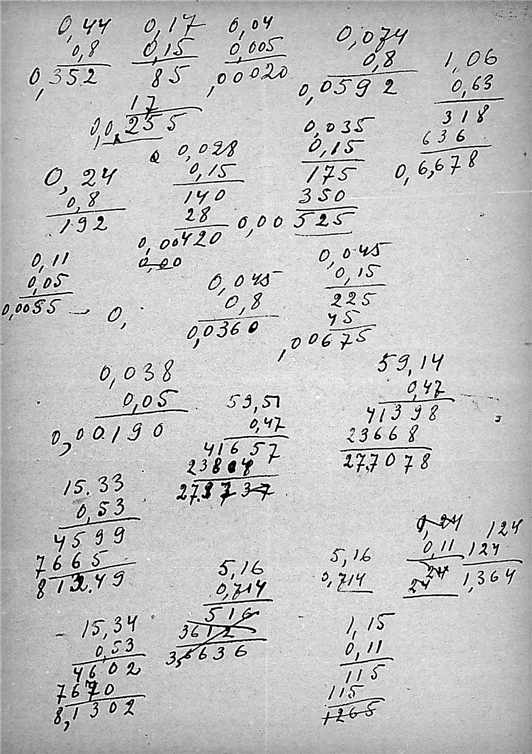 0,44
0,8
0,352
0,17
0,15
85
17
0,0255
0,04
0,005
,00020
0,074
0,8
0,0592
1,06
0,63
318
636
0,6,678
0,24
0,8
192
0,028
0,15
140
28
0,00420
0,00
0,035
0,15
175
350
0,00525
0,11
0,05
0,0055
0,
0,045
0,8
0,0360
0,045
0,15
225
45
,00675
0,038
0,05
0,00190
59,51
0,47
41657
59,14
0,47
41398
23668
27,7078
15.33
0,53
4599
7665
5,16
0,714
516
3612
3,6636
5,16
0,714
0,11
24
124
124
1,364
15,34
0,53
4602
7670
8,1302
1,15
0,11
115
115
1265